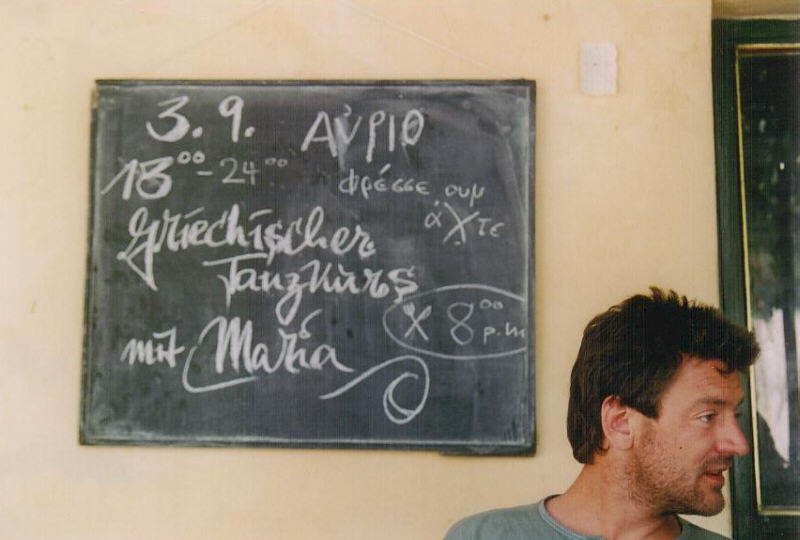 3. 9. ΑὐΡΙΟ
18⁰⁰ - 24⁰⁰
φρέσσε ουμ
ἀΧτε
Griechischer
Tanzkurs
mit Maria
X 8⁰⁰ p.m